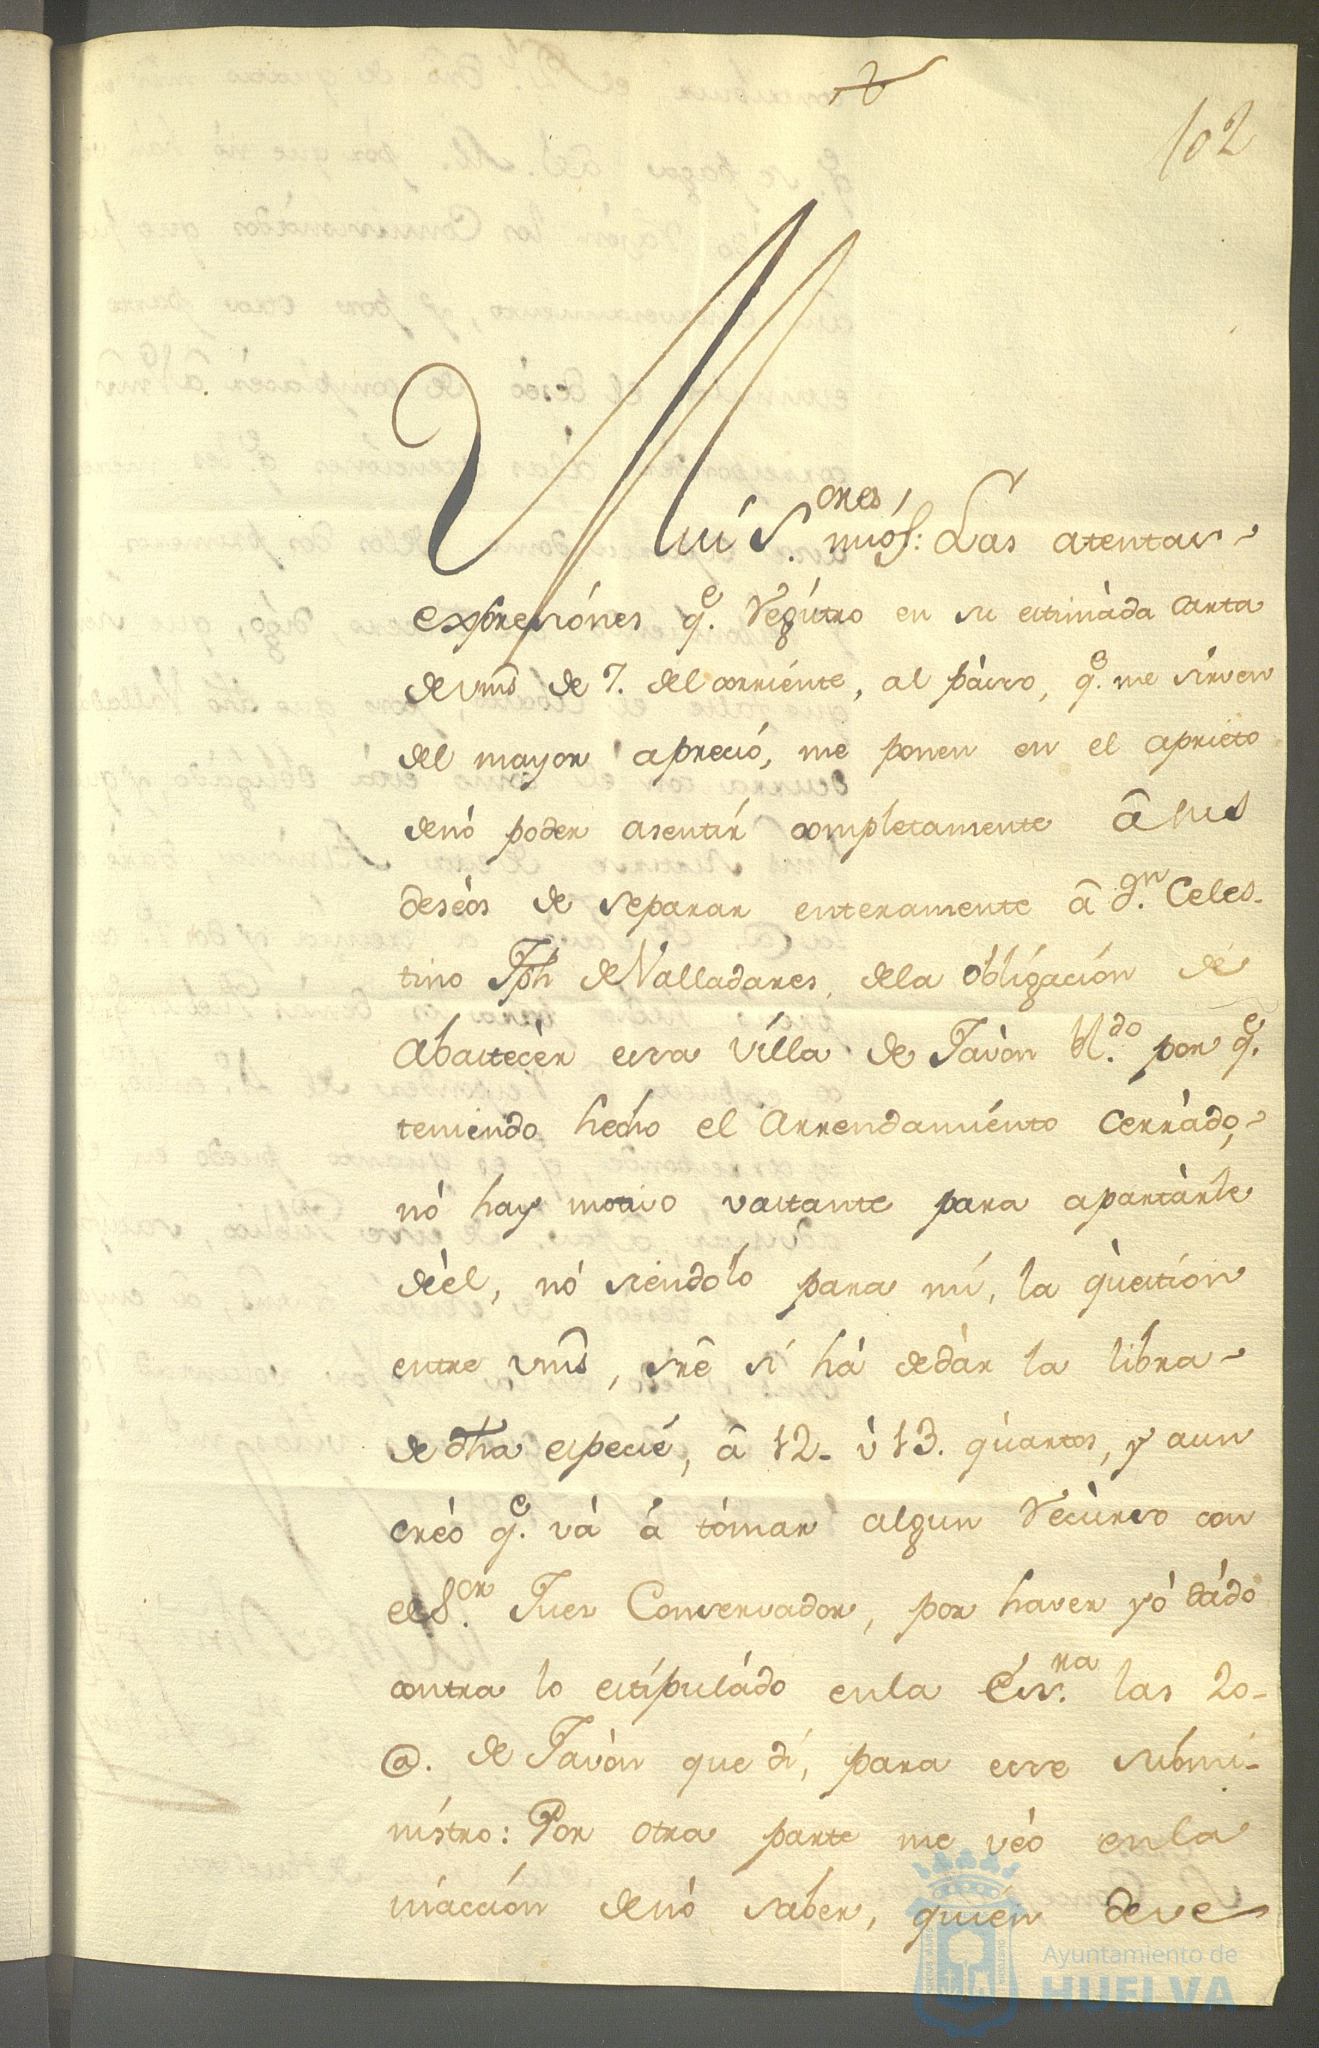 102
Mui S.ores mios: Las atentas
expresiónes q.e Regístro en su estimàda carta
de vm̃s de 7. del corriénte, al pàsso, q.e me sirven
del mayor apreció, me ponen en el aprieto
denó poder asentír completamente â sus
deséos de separar enteramente â d.n Celes-
tino Jph de Valladares, dela obligación de
Abastecèr essa Villa de Javòn bl.do por q.e
teniendo hecho el Arrendamiénto cerràdo,
nò hay motivo vastante para apartàrle
dèel, nó siendolo para mí, la qùestíon
entre vm̃s, srẽ sí hà dedàr la libra
de dha especié, â 12. ù 13. quartos, y aun
créo q.e và á tómar algun Recùrso con
el S.or Juez Conservador, por haver yò dádo
contra lo estípuládo enla Esv.ra las 20
@. de Javòn que dí, para esse submi-
nístro: Por otra parte me véo enla
inacción denò saber, quién deve
Ayuntamiento de
HUELVA